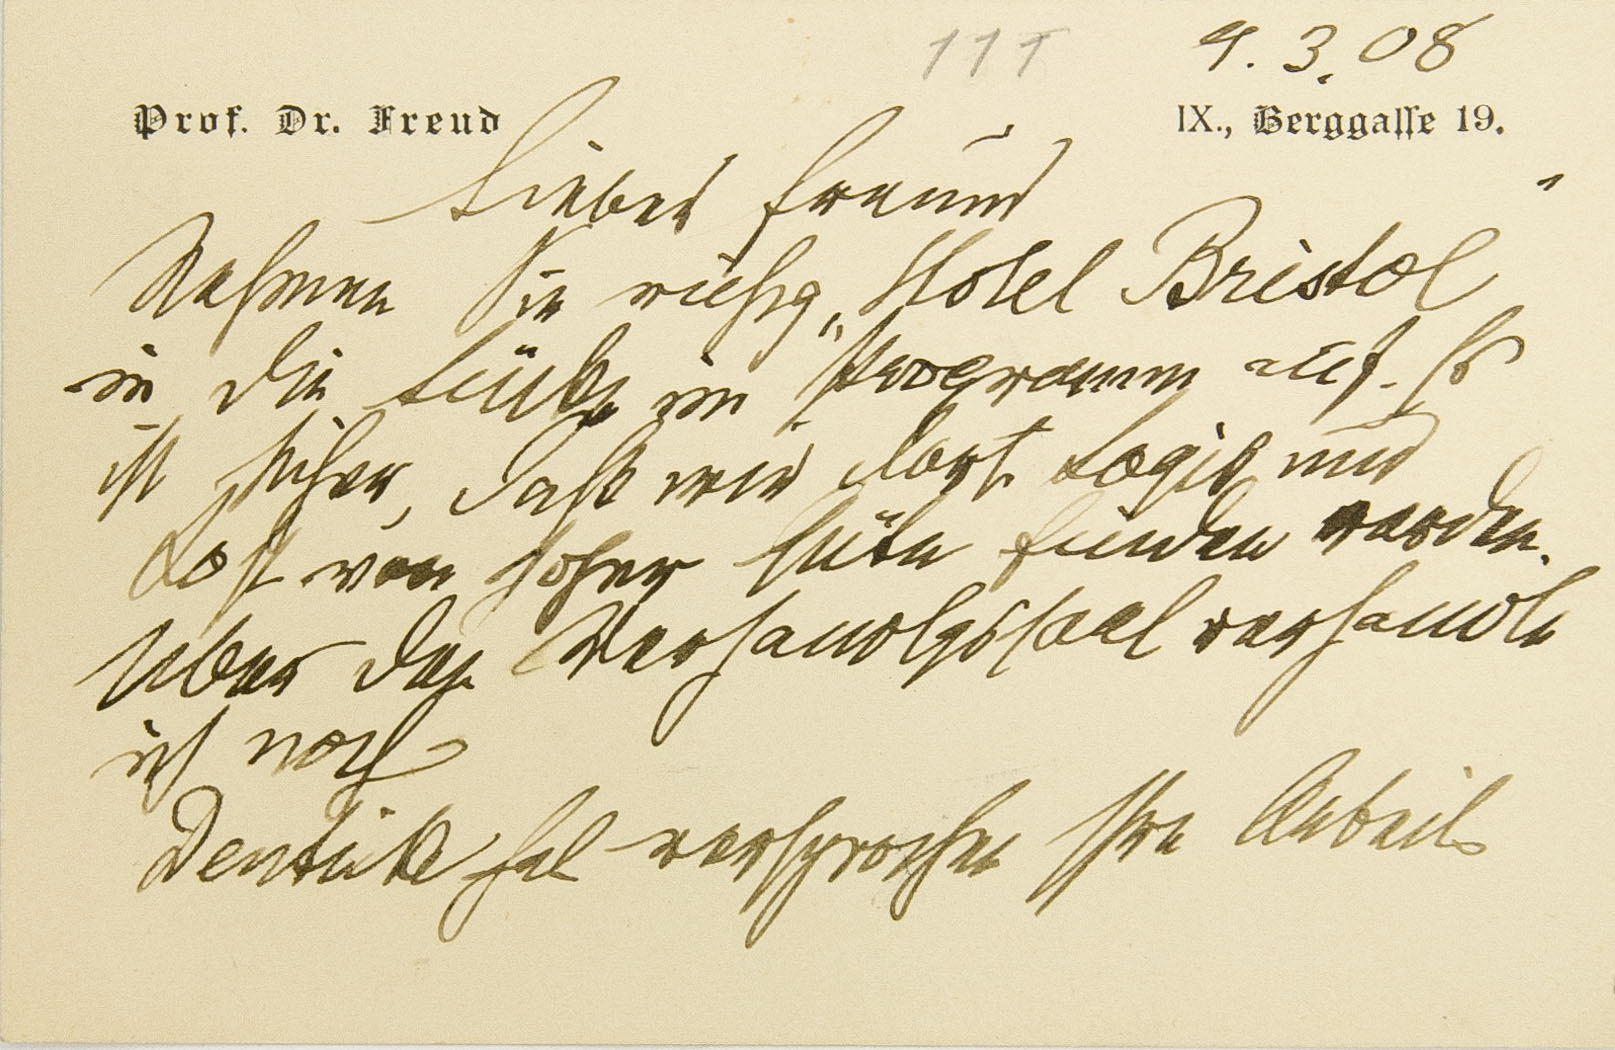 111 9. 3. 08
Prof. Dr. Freud IX., Berggasse 19.
Lieber Freund
Nehmen Sie ruhig „Hotel Bristol“
in die Lücke im Programm auf. Es
ist sicher, daß wir dort Logis und
Kost von hoher Güte finden werden.
Über den Verhandlgssaal verhandle
ich noch
Deuticke hat versprochen Ihre Arbeit